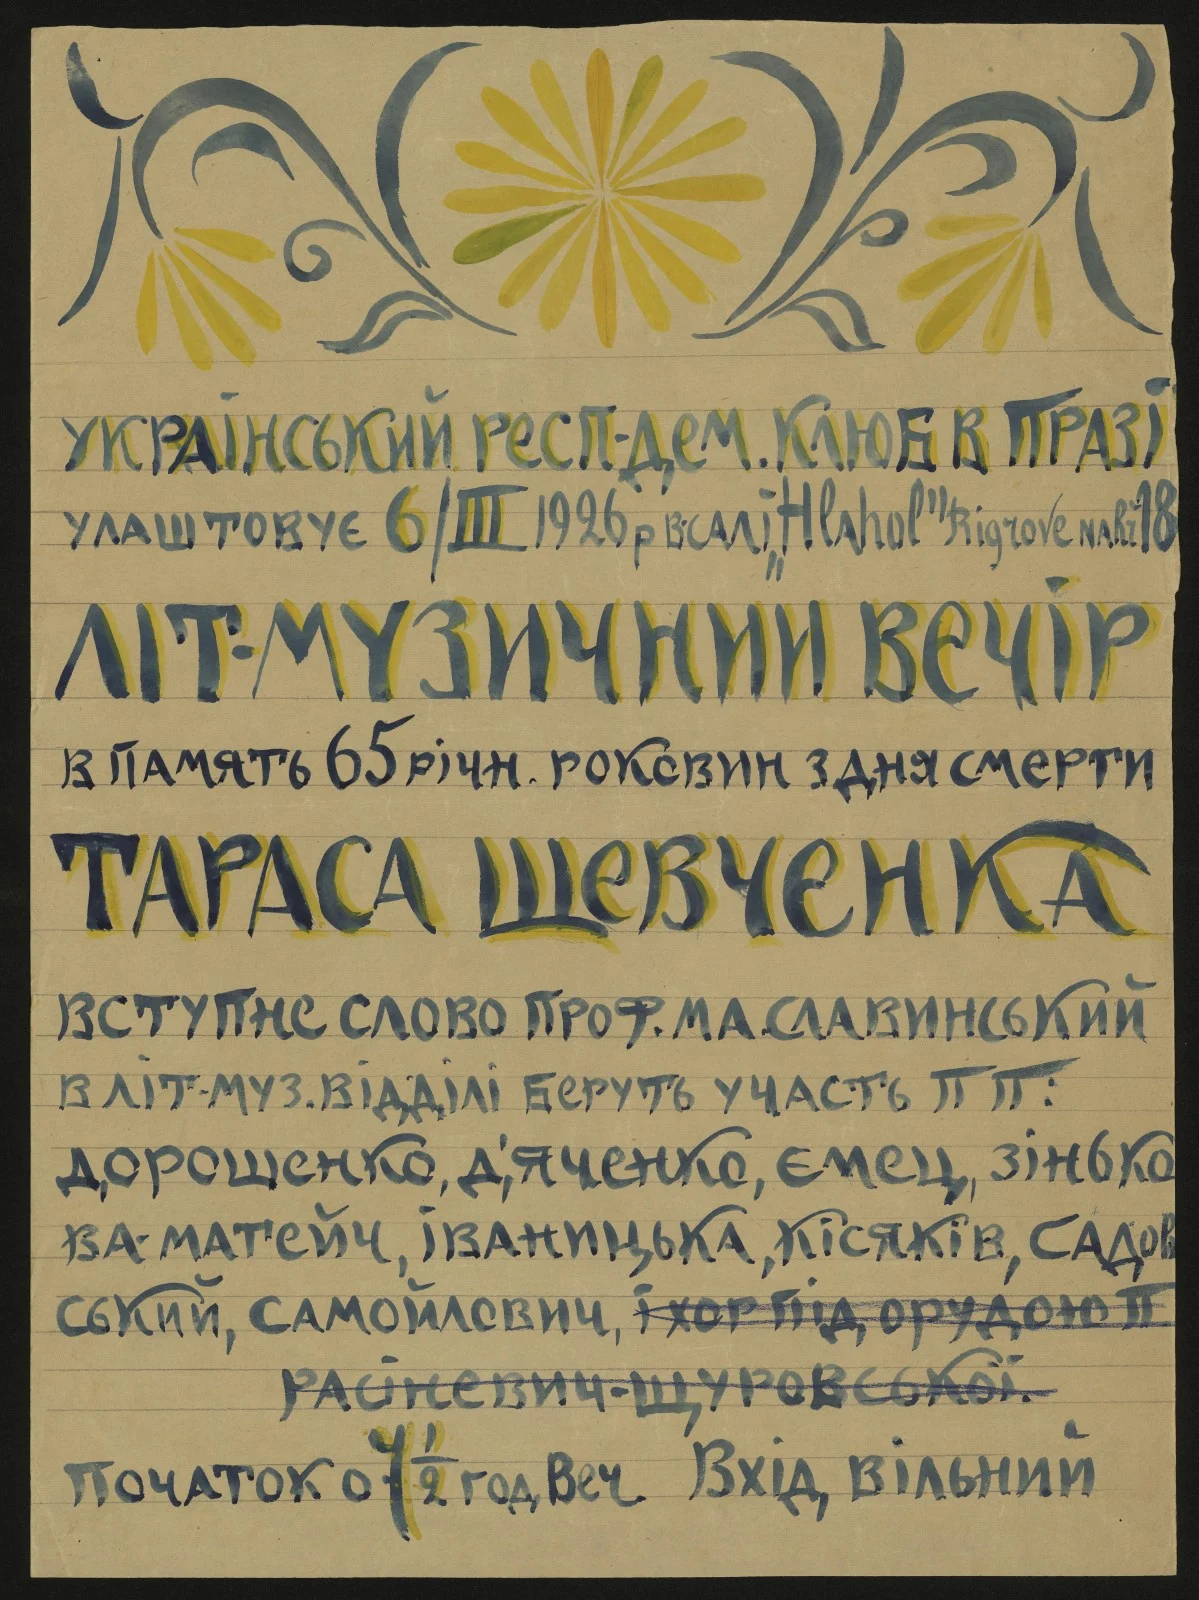 УКРАЇНСЬКИЙ РЕСП-ДЕМ. КЛЮБ В ПРАЗІ
УЛАШТОВУЄ 6/III 1926 р В САЛІ „Hlahol" Rigrove NABŘ 18
ЛІТ-МУЗИЧНИЙ ВЕЧІР
В ПАМЯТЬ 65 РІЧН. РОКОВИН З ДНЯ СМЕРТИ
ТАРАСА ШЕВЧЕНКА
ВСТУПНЕ СЛОВО ПРОФ. М А. СЛАВИНСЬКИЙ
В ЛІТ-МУЗ. ВІДДІЛІ БЕРУТЬ УЧАСТЬ П П:
ДОРОШЕНКО, Д'ЯЧЕНКО, ЄМЕЦ, ЗІНЬКО
ВА-МАТ'ЕЙЧ, ІВАНИЦЬКА, КІСЯКІВ, САДОВ
СЬКИЙ, САМОЙЛОВИЧ, І ХОР ПІД ОРУДОЮ П
ЩУРОВСЬКОЇ.
ПОЧАТОК О 7 1/2 ГОД ВЕЧ. ВХІД ВІЛЬНИЙ